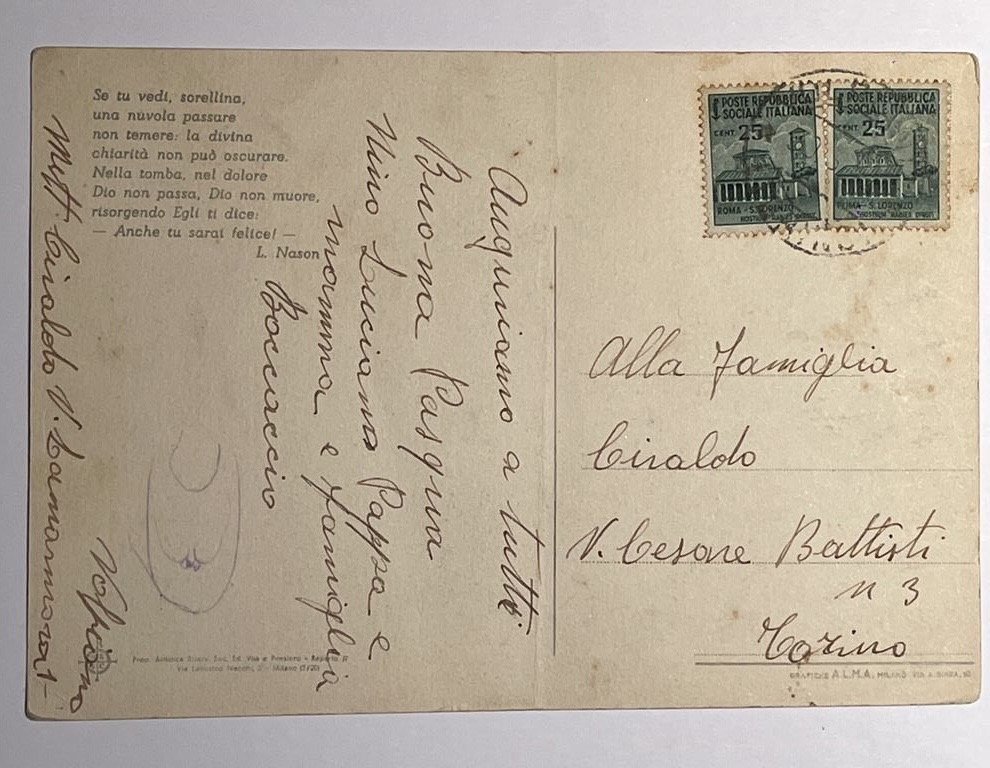 Se tu vedi, sorellina,
una nuvola passare
non temere: la divina
chiarità non può oscurare.
Nella tomba, nel dolore
Dio non passa, Dio non muore,
risorgendo Egli ti dice:
— Anche tu sarai felice! —
L. Nason
Auguriamo a tutti
Buona Pasqua
Nino Luciano Pappa e
mamma e famiglia
Boccaccio
Mitt. Ciraldo V. Lamarmora 1
POSTE REPUBBLICA
SOCIALE ITALIANA
CENT. 25
ROMA - S. LORENZO
HOSTIUM RABIES DIRUIT
POSTE REPUBBLICA
SOCIALE ITALIANA
CENT. 25
ROMA - S. LORENZO
HOSTIUM RABIES DIRUIT
Alla Famiglia
Ciraldo
V. Cesare Battisti
n 3
Torino
Prop. Artistica Riserv. Soc. Ed. Vita e Pensiero - Reparto
Via Lodovico Necchi, 2 - Milano
GRAFICHE A.L.M.A. MILANO VIA A.